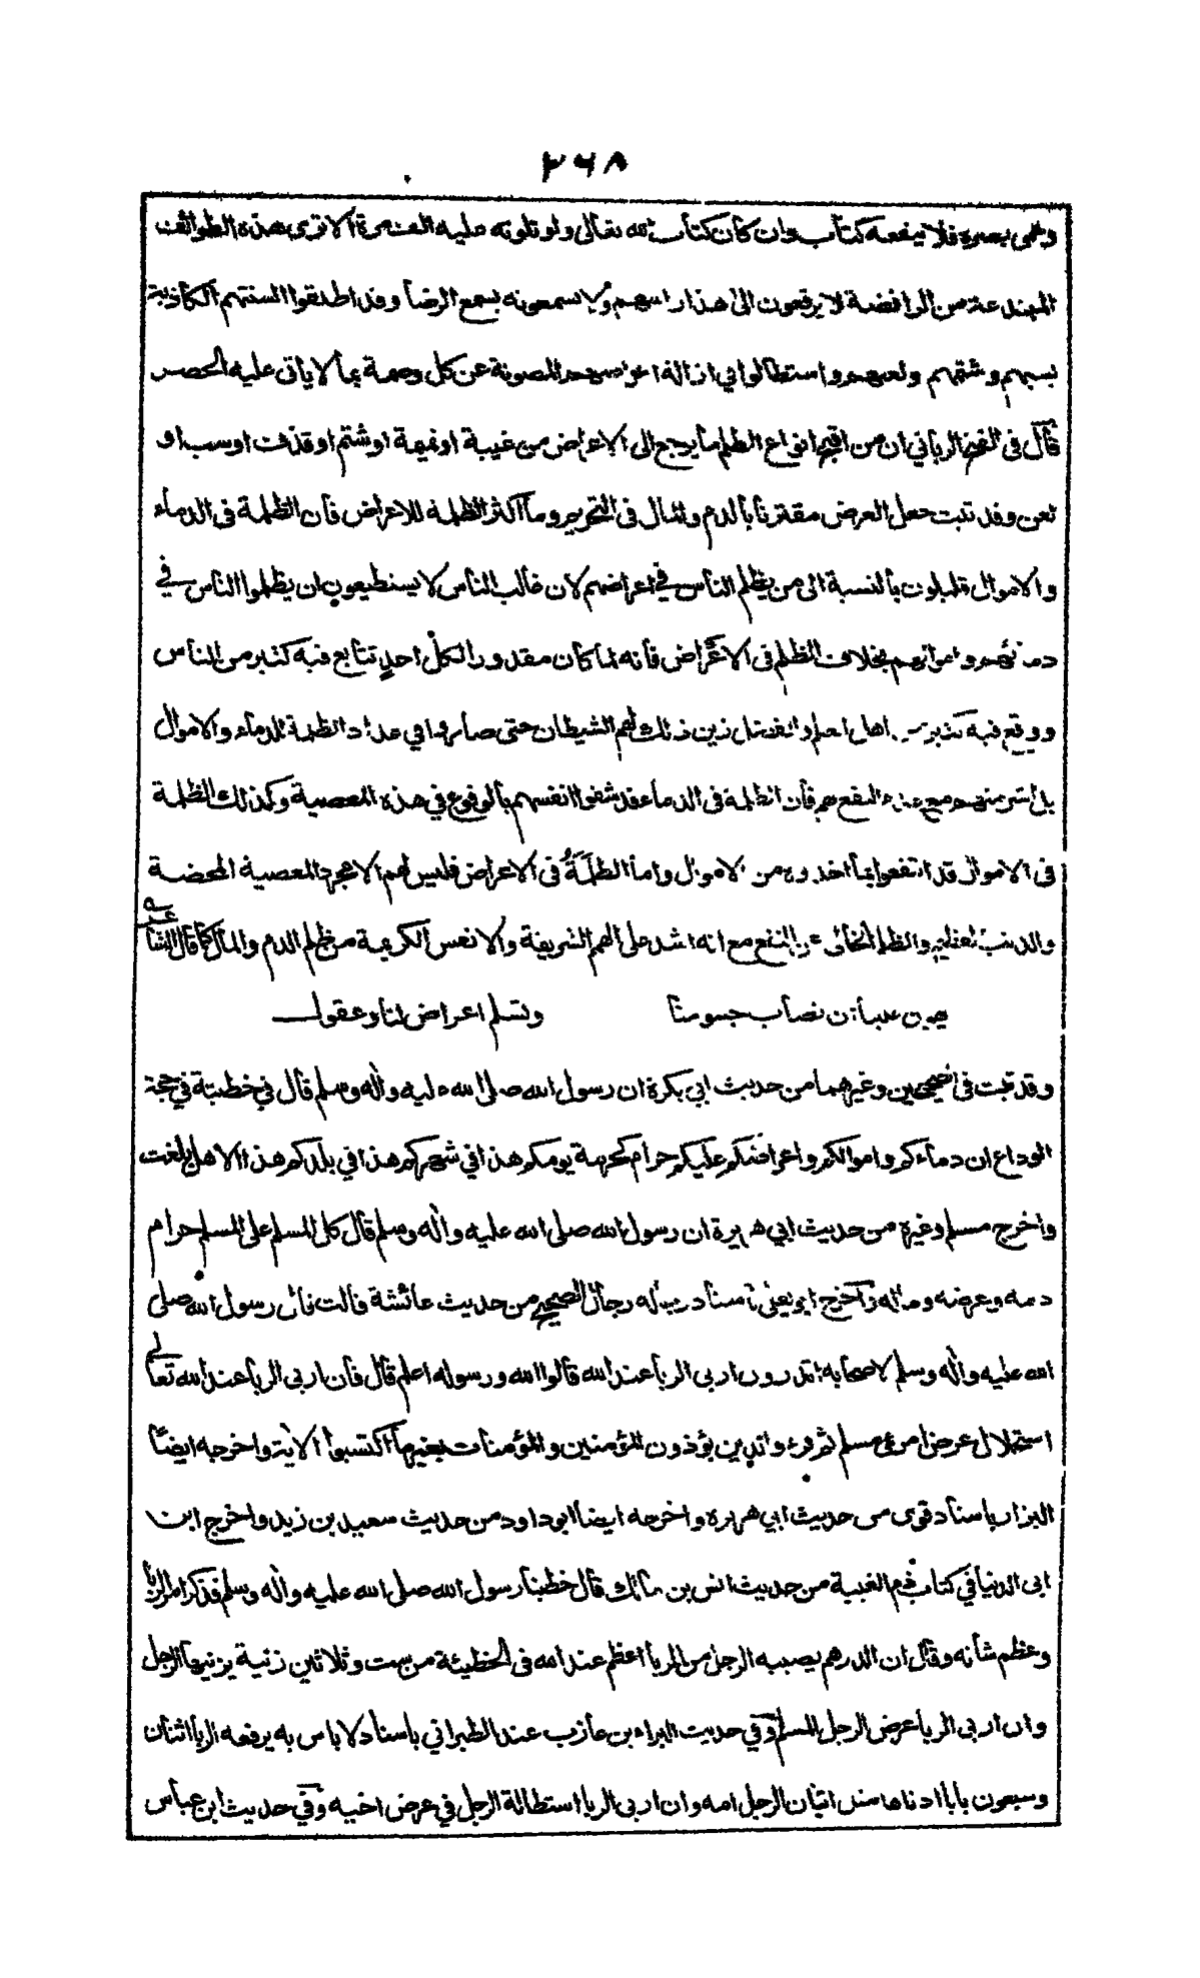 ٢٦٨
وعمى بصره فلا ينفعه كتاب وان كان كتاب الله تعالى ولو تلوته عليه الف مرة الا ترى هذه الطوائف
المبتدعة من الرافضة لا يرفعون الى هذا راسهم ولا يسمعونه بسمع الرضا وقد اطلقوا السنتهم الكاذبة
بسبهم وشتمهم ولعنهم واستطالوا في ازالة اعراضهم المصونة عن كل وصمة بما لا ياتى عليه الحصر
قال فى الفتح الربانى ان من اقبح انواع الظلم ما يرجع الى الاعراض من غيبة او نميمة او شتم او قذف او سب او
لعن وقد ثبت جعل العرض مقترنا بالدم والمال فى التحريم وما اكثر الظلمة للاعراض فان الظلمة فى الدماء
والاموال قليلون بالنسبة الى من يظلم الناس في اعراضهم لان غالب الناس لا يستطيعون ان يظلموا الناس في
دمائهم واموالهم بخلاف الظلم فى الاعراض فانه لما كان مقدورا لكل احد تتابع فيه كثير من الناس
ووقع فيه كثير من اهل العلم والفضل زين ذلك لهم الشيطان حتى صاروا في عداد الظلمة للدماء والاموال
بل اشر منهم مع عدم النفع لهم فان الظلمة فى الدماء قد شفوا انفسهم بالوقوع في هذه المعصية وكذلك الظلمة
فى الاموال قد انتفعوا بما اخذوه من الاموال واما الظلمة فى الاعراض فليس لهم الا مجرد المعصية المحضة
والذنب العظيم والظلم الخالى عن النفع مع انه اشد على الهمم الشريفة والانفس الكريمة من ظلم الدم والمال كما قال الشاعر
يهون علينا ان تصاب جسومنا وتسلم اعراض لنا وعقول
وقد ثبت فى الصحيحين وغيرهما من حديث ابي بكرة ان رسول الله صلى الله عليه واله وسلم قال في خطبته في حجة
الوداع ان دماءكم واموالكم واعراضكم عليكم حرام كحرمة يومكم هذا في شهركم هذا في بلدكم هذا الا هل بلغت
واخرج مسلم وغيره من حديث ابي هريرة ان رسول الله صلى الله عليه واله وسلم قال كل المسلم على المسلم حرام
دمه وعرضه وماله واخرج ابو يعلى باسناد رجاله رجال الصحيح من حديث عائشة قالت قال رسول الله صلى
الله عليه واله وسلم لاصحابه اتدرون اربى الربا عند الله قالوا الله ورسوله اعلم قال فان اربى الربا عند الله تعالى
استحلال عرض امرئ مسلم ثم قرء والذين يؤذون المؤمنين والمؤمنات بغير ما اكتسبوا الاية واخرجه ايضا
البزار باسناد قوى من حديث ابي هريرة واخرجه ايضا ابو داود من حديث سعيد بن زيد واخرج ابن
ابى الدنيا في كتاب ذم الغيبة من حديث انس بن مالك قال خطبنا رسول الله صلى الله عليه واله وسلم فذكر امر الربا
وعظم شانه وقال ان الدرهم يصيبه الرجل من الربا اعظم عند الله فى الخطيئة من ست وثلاثين زنية يزنيها الرجل
وان اربى الربا عرض الرجل المسلم وفي حديث البراء بن عازب عند الطبراني باسناد لا باس به يرفعه الربا اثنان
وسبعون بابا ادناها مثل اتيان الرجل امه وان اربى الربا استطالة الرجل في عرض اخيه وفي حديث ابن عباس